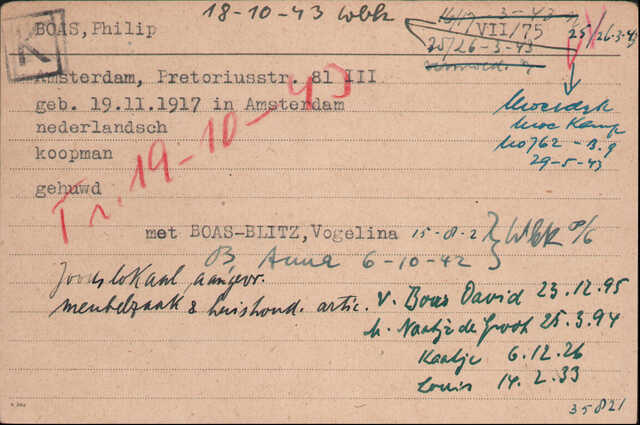 18-10-43 Wbk
BOAS, Philip
K
VII/75
25/26-3-43
25/26-3-43
Amsterdam, Pretoriusstr. 81 III
geb. 19.11.1917 in Amsterdam
nederlandsch
koopman
gehuwd
Tr. 19-10-43
29-5-43
met BOAS-BLITZ, Vogelina 15-8-2 } Wbk
B Anna 6-10-42
Joods lokaal aangevr.
meubelzaak & huishoud. artic.
v. Boas David 23.12.95
m. Naatje de Groot 25.3.94
Kaatje 6.12.26
Louis 14.2.33
35821